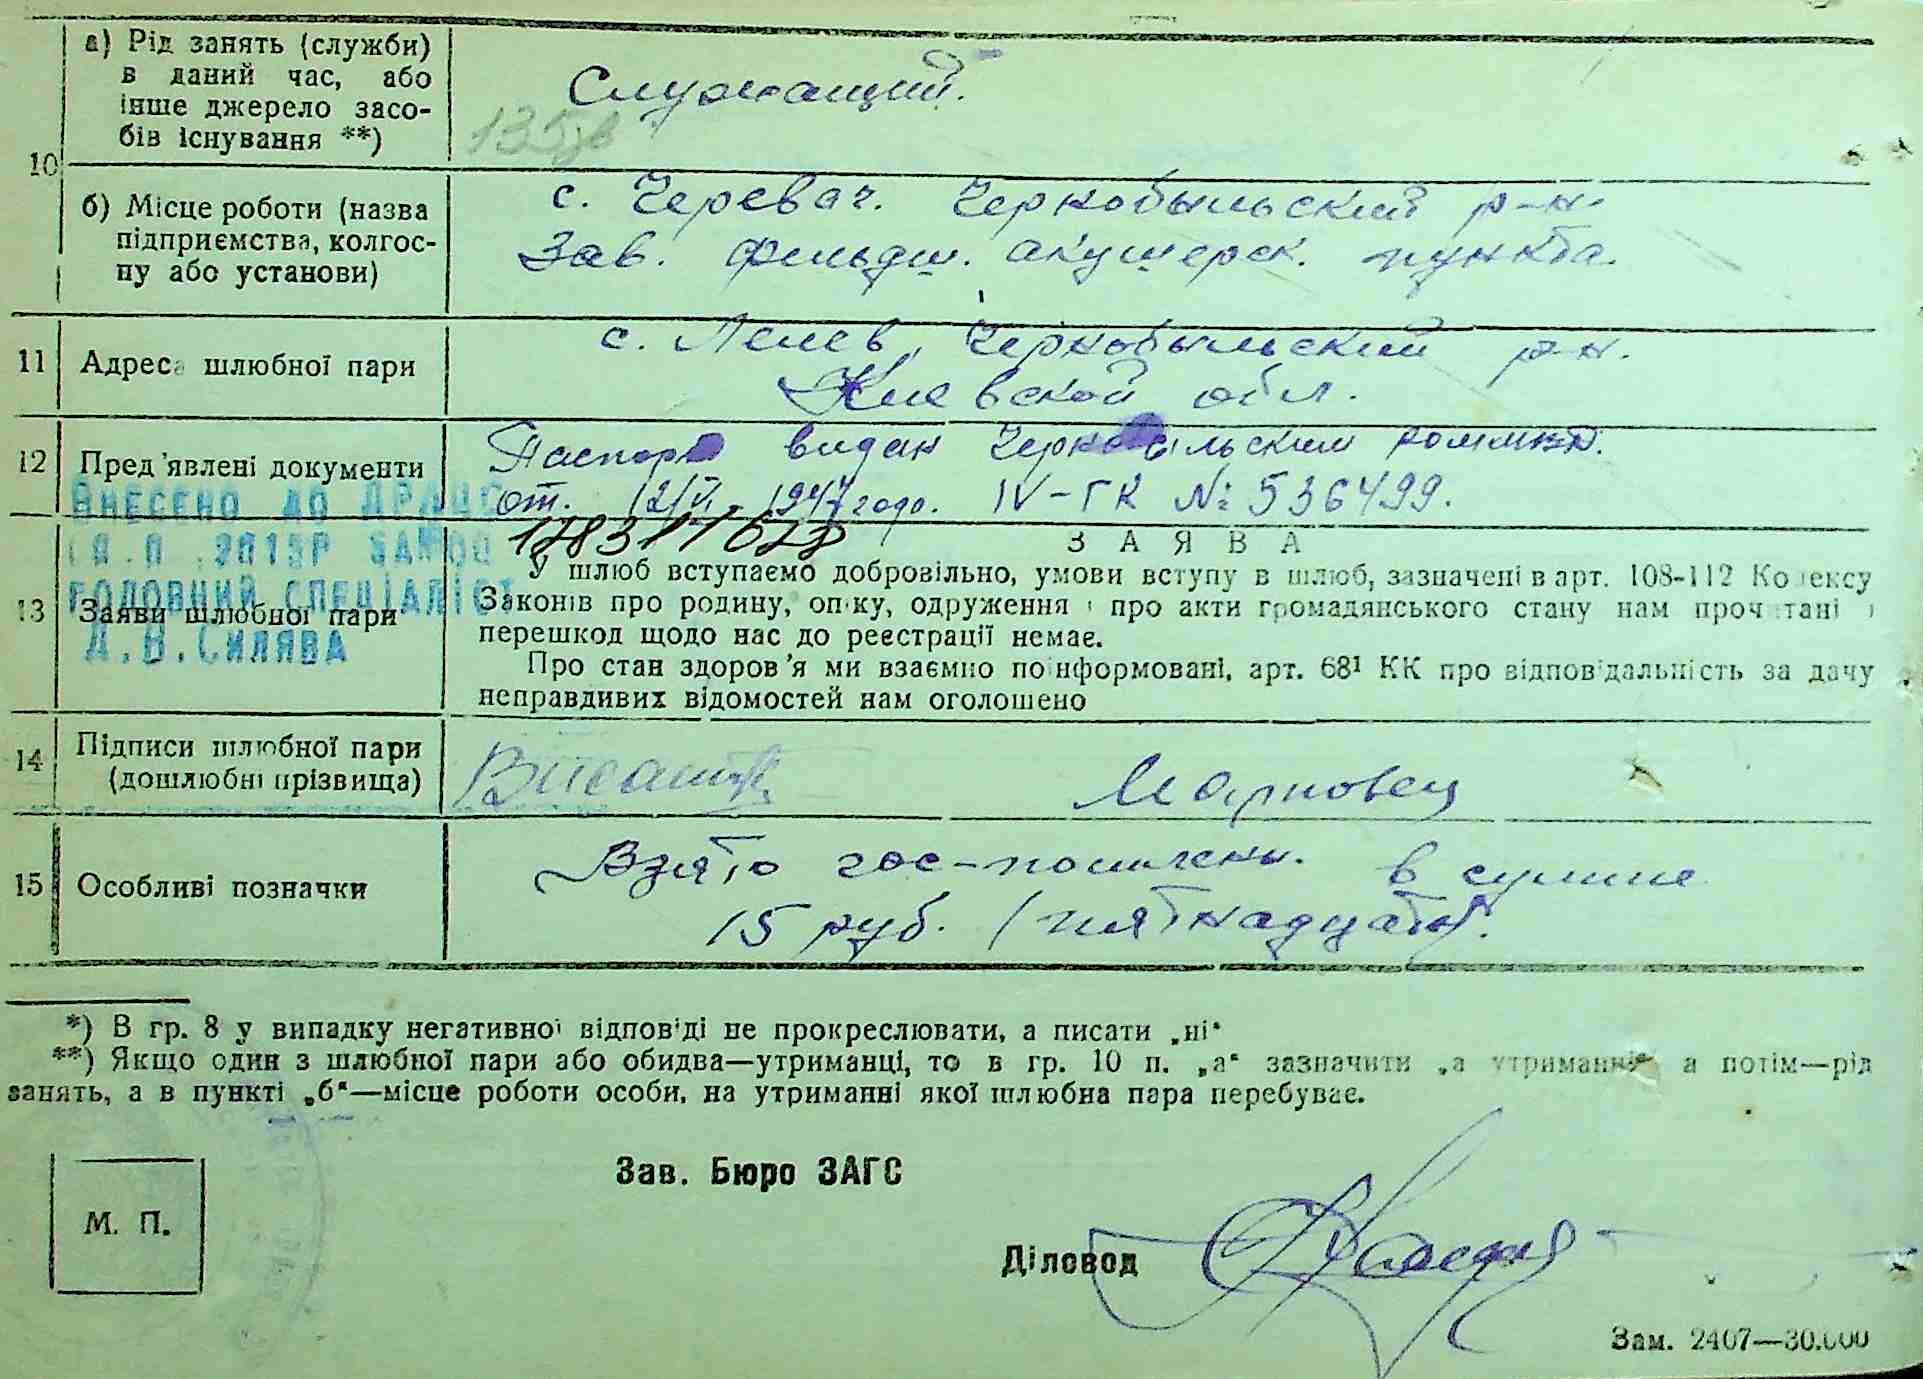 10
а) Рід занять (служби)
в даний час, або
інше джерело засо-
бів існування **)
Служащий.
б) Місце роботи (назва
підприємства, колгос-
пу або установи)
с. Черевач. Чернобыльский р-н.
Зав. фельдш. акушерск. пункта.
11
Адреса шлюбної пари
с. Лелев, Чернобыльский р-н.
Киевской обл.
12
Пред'явлені документи
Паспорт видан Чернобыльским
от. 12/VI - 1947 года. IV-ГК № 536499.
Внесено до ДРАЦС
головний спеціаліст
Л.В.Силява
13
Заяви шлюбної пари
ЗАЯВА
У шлюб вступаємо добровільно, умови вступу в шлюб, зазначені в арт. 108-112 Кодексу
Законів про родину, опіку, одруження і про акти громадянського стану нам прочитані і
перешкод щодо нас до реєстрації немає.
Про стан здоров'я ми взаємно поінформовані, арт. 68¹ КК про відповідальність за дачу
неправдивих відомостей нам оголошено
14
Підписи шлюбної пари
(дошлюбні прізвища)
15
Особливі позначки
Взято гос-пошлены. в сумме
15 руб. (пятнадцать).
*) В гр. 8 у випадку негативної відповіді не прокреслювати, а писати „ні“
**) Якщо один з шлюбної пари або обидва—утриманці, то в гр. 10 п. „а“ зазначити „а утриманні“ а потім—рід
занять, а в пункті „б“—місце роботи особи, на утриманні якої шлюбна пара перебуває.
Зав. Бюро ЗАГС
М. П.
Діловод
Зам. 2407—30.000